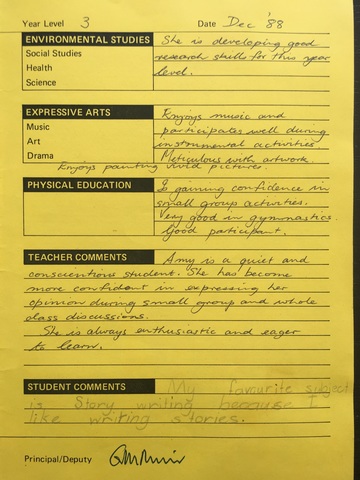 Year Level 3 Date Dec '88
ENVIRONMENTAL STUDIES She is developing good
Social Studies research skills for this year
Health level.
Science
EXPRESSIVE ARTS Enjoys music and
Music participates well during
Art instrumental activities
Drama Meticulous with artwork.
Enjoys painting vivid pictures.
PHYSICAL EDUCATION Is gaining confidence in
small group activities.
Very good in gymnastics.
Good participant.
TEACHER COMMENTS Amy is a quiet and
conscientious student. She has become
more confident in expressing her
opinion during small group and whole
class discussions.
She is always enthusiastic and eager
to learn.
STUDENT COMMENTS My favourite subject
is Story writing because I
like writing stories.
Principal/Deputy